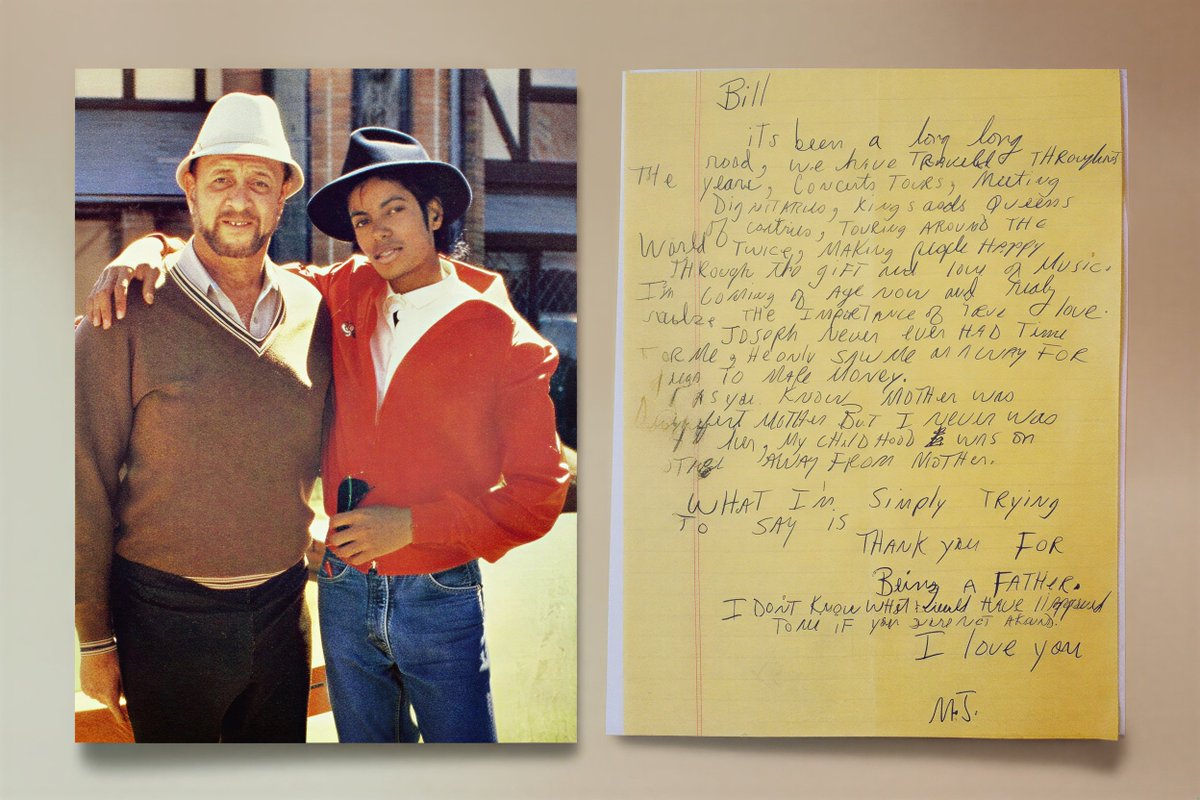 Bill
its been a long long
road, we have TRAVELD THROUGHOUT
THe years, Concerts Tours, Meeting
DigNiTARies, Kings ands Queens
of contries, TOURING AROUND THE
World Twice, MAKING people HAPPY
THROUGH the gift and love of Music.
I'm Coming of Age now and truly
realize THe IMPORTANCE of True love.
JOSEPH Never ever HAD Time
FOR Me, He only SAW Me A WAY FOR
TO MAKE MONEY.
AS you KNOW MOTHER was
perfect MOTHER BuT I never was
her, My CHiLDHOOD was on
STAGE AWAY FROM MOTHER.
WHAT I'm Simply TRYING
TO SAY IS
THANK you FOR
Being A FATHeR.
I DON'T KNOW WHAT would HAVE Happened
To Me IF you were NOT AROUND.
I love you
M.J.